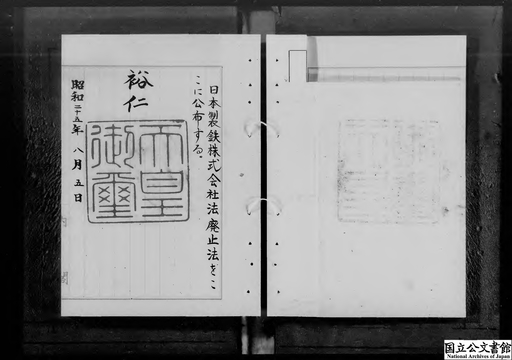 日本製鉄株式会社法廃止法をこ
こに公布する。
裕仁
天皇
御璽
昭和二十五年 八月五日
内
閣
国立公文書館
National Archives of Japan